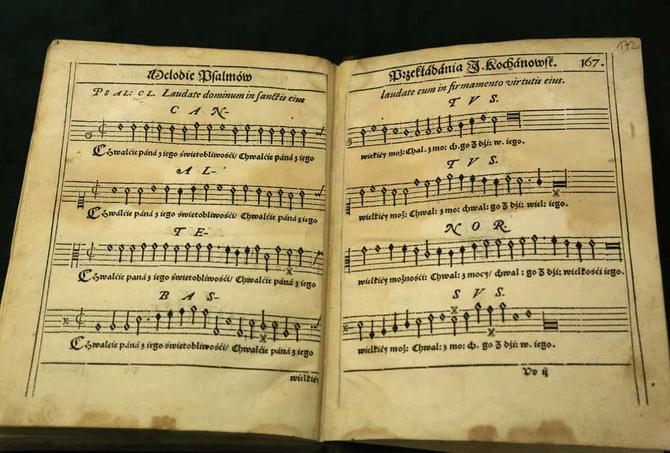 Melodie Psalmów
PSAL: CL. Laudate dominum in sanctis eius
CAN-
Chwalćie páná z iego świetobliwośći/ Chwalćie páná z iego
AL-
Chwalćie páná z iego świetobliwośći/ Chwalćie páná z iego
TE-
Chwalćie paná z iego świetobliwośći/ Chwalćie páná z iego
BAS-
Chwalćie páná z iego świetobliwośći/ Chwalćie páná z iego
wielkiéy
172
Przekłádánia J. Kochánowsk. 167.
laudate eum in firmamento virtutis eius.
TVS.
wielkiéy moż: Chwal. z mo: chwal. go dźi: w. iego.
TVS.
wielkiéy moż: Chwal: z mo: chwal. go dźi: wiel: iego.
NOR.
wielkiéy możnośći: Chwal: z mocy/ chwal: go dźi: wielkośći iego.
SVS.
wielkiéy moż: Chwal: z mo: ch. go dźi: w. iego.
Vv ij